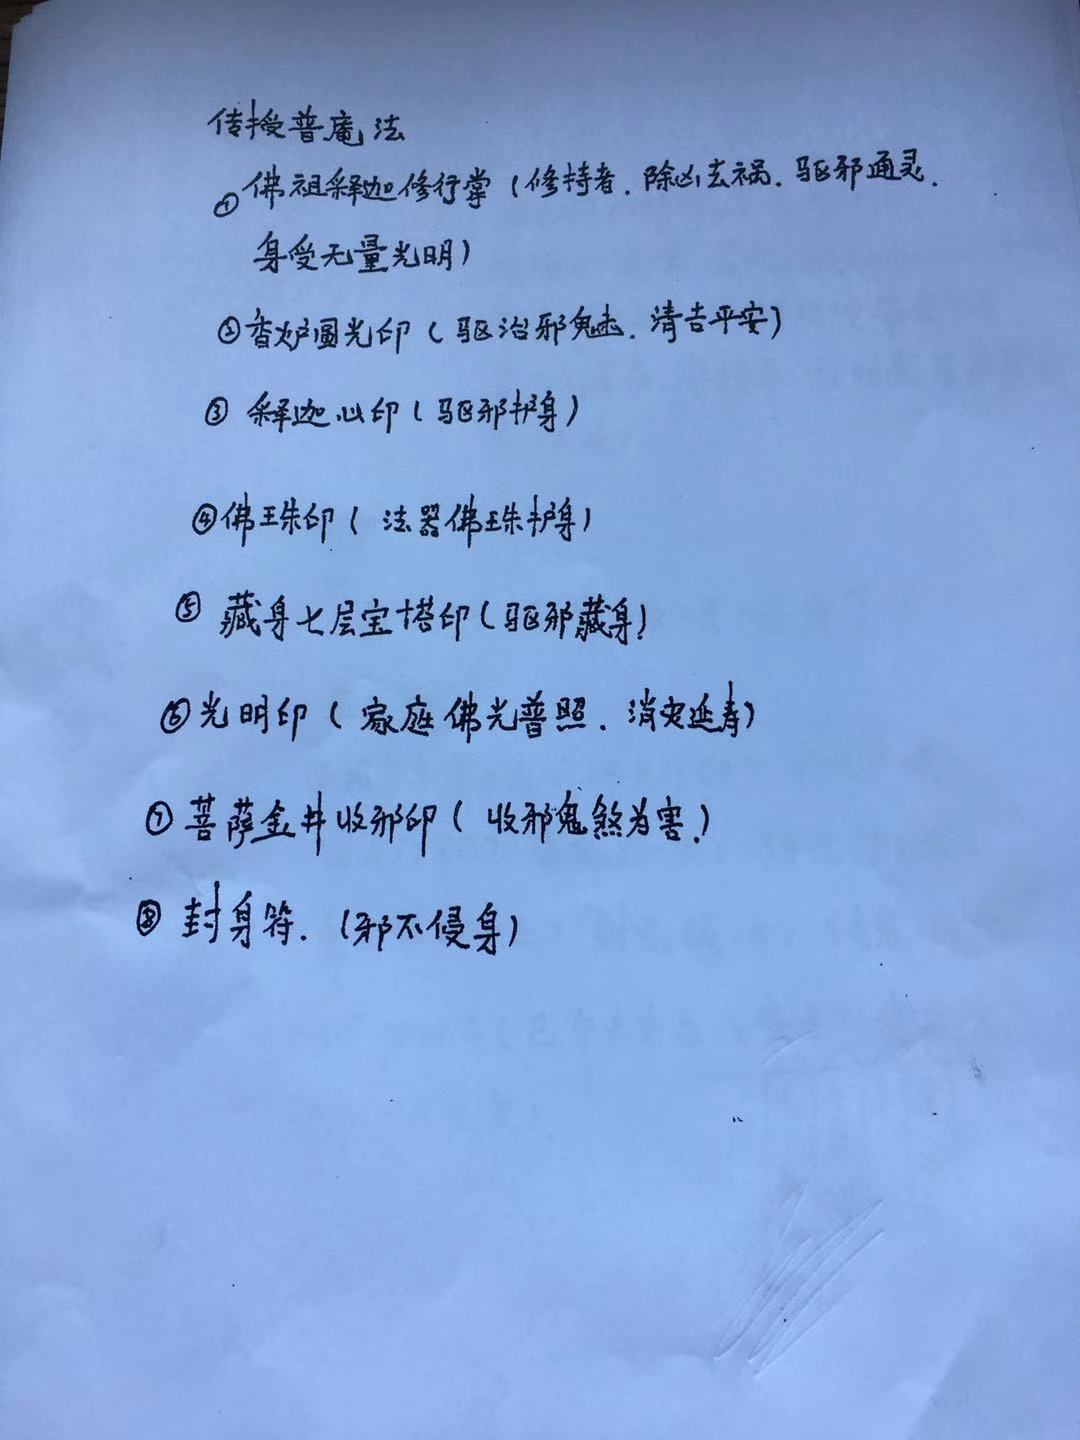 传授普庵法
① 佛祖释迦修行掌（修持者．除凶去祸．驱邪通灵．
身受无量光明）
② 香炉圆光印（驱治邪魅．清吉平安）
③ 释迦心印（驱邪护身）
④ 佛珠印（法器佛珠护身）
⑤ 藏身七层宝塔印（驱邪藏身）
⑥ 光明印（家庭佛光普照．消灾延寿）
⑦ 菩萨金井收邪印（收邪鬼煞为害．）
⑧ 封身符．（邪不侵身）